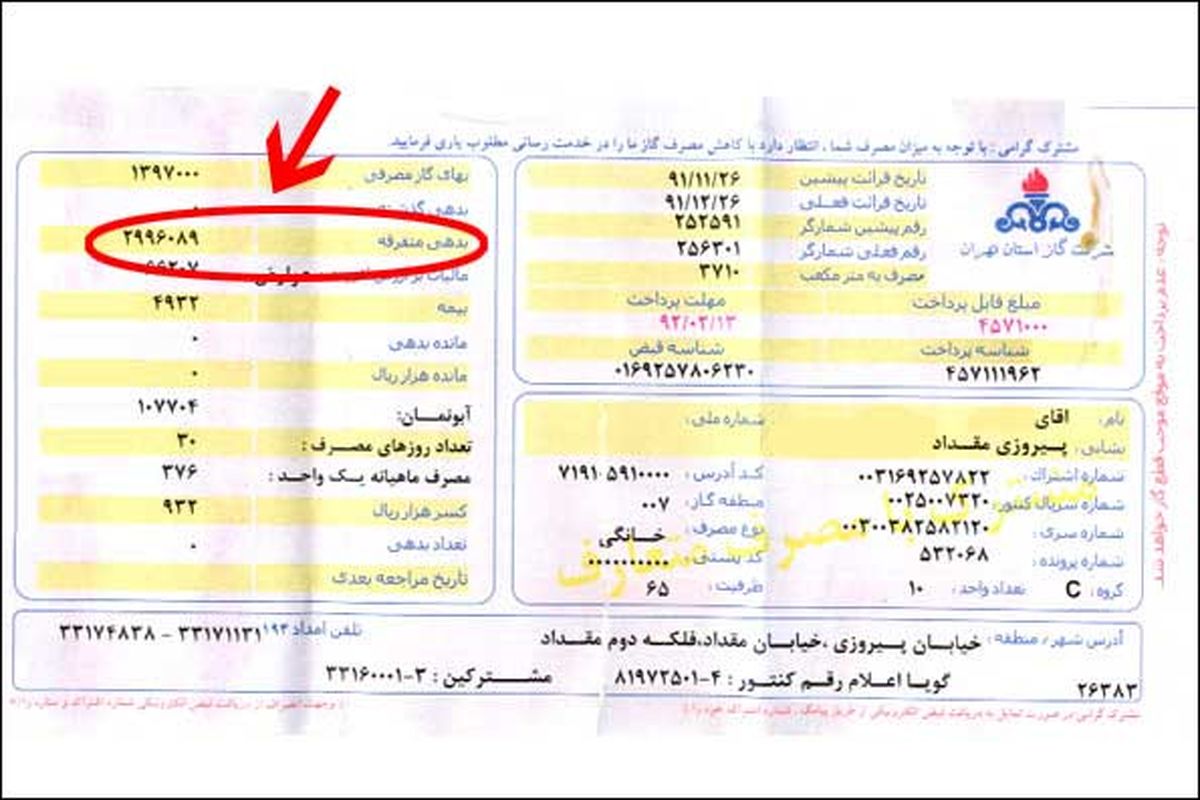 مشترک گرامی : با توجه به میزان مصرف شما ، انتظار دارد با کاهش مصرف گاز ما را در خدمت رسانی مطلوب یاری فرمایید.
شرکت گاز استان تهران
تاریخ قرائت پیشین ۹۱/۱۱/۲۶
تاریخ قرائت فعلی ۹۱/۱۲/۲۶
رقم پیشین شمارگر ۲۵۲۵۹۱
رقم فعلی شمارگر ۲۵۶۳۰۱
مصرف به متر مکعب ۳۷۱۰
مبلغ قابل پرداخت مهلت پرداخت
۴۵۷۱۰۰۰ ۹۲/۰۲/۱۳
شناسه پرداخت شناسه قبض
۴۵۷۱۱۱۹۶۲ ۰۱۶۹۲۵۷۸۰۶۲۳۰
نام: اقای شماره ملی:
نشانی: پیروزی مقداد
شماره اشتراک: ۰۰۳۱۶۹۲۵۷۸۲۲ کد آدرس: ۷۱۹۱۰۵۹۱۰۰۰۰
شماره سریال کنتور: ۰۰۲۵۰۰۷۳۲۰ منطقه گاز: ۰۰۷
شماره سری: ۰۰۳۰۰۳۸۲۵۸۲۱۲۰ نوع مصرف: خانگی
شماره پرونده: ۵۳۲۰۶۸ کد پستی: ۰۰۰۰۰۰۰۰۰۰
گروه: C تعداد واحد: ۱۰ ظرفیت: ۶۵
مشترک با مصرف متعارف
بهای گاز مصرفی ۱۳۹۷۰۰۰
بدهی گذشته ۰
بدهی متفرقه ۲۹۹۶۰۸۹
مالیات بر
بیمه ۴۹۳۲
مانده بدهی ۰
مانده هزار ریال ۰
آبونمان: ۱۰۷۷۰۴
تعداد روزهای مصرف : ۳۰
مصرف ماهیانه یک واحد : ۳۷۶
کسر هزار ریال ۹۳۲
تعداد بدهی ۰
تاریخ مراجعه بعدی
آدرس شهر / منطقه : خیابان پیروزی ،خیابان مقداد،فلکه دوم مقداد تلفن امداد ۱۹۴ ۳۳۱۷۱۱۳۱ - ۳۳۱۷۴۸۳۸
۲۶۳۸۳ گویا اعلام رقم کنتور : ۴-۸۱۹۷۲۵۰۱ مشترکین : ۳-۳۳۱۶۰۰۰۱
مشترک گرامی در صورت تمایل به دریافت قبض الکترونیکی از طریق پیامک ، شماره اشتراک خود را
توجه : عدم پرداخت به موقع موجب قطع گاز خواهد شد.